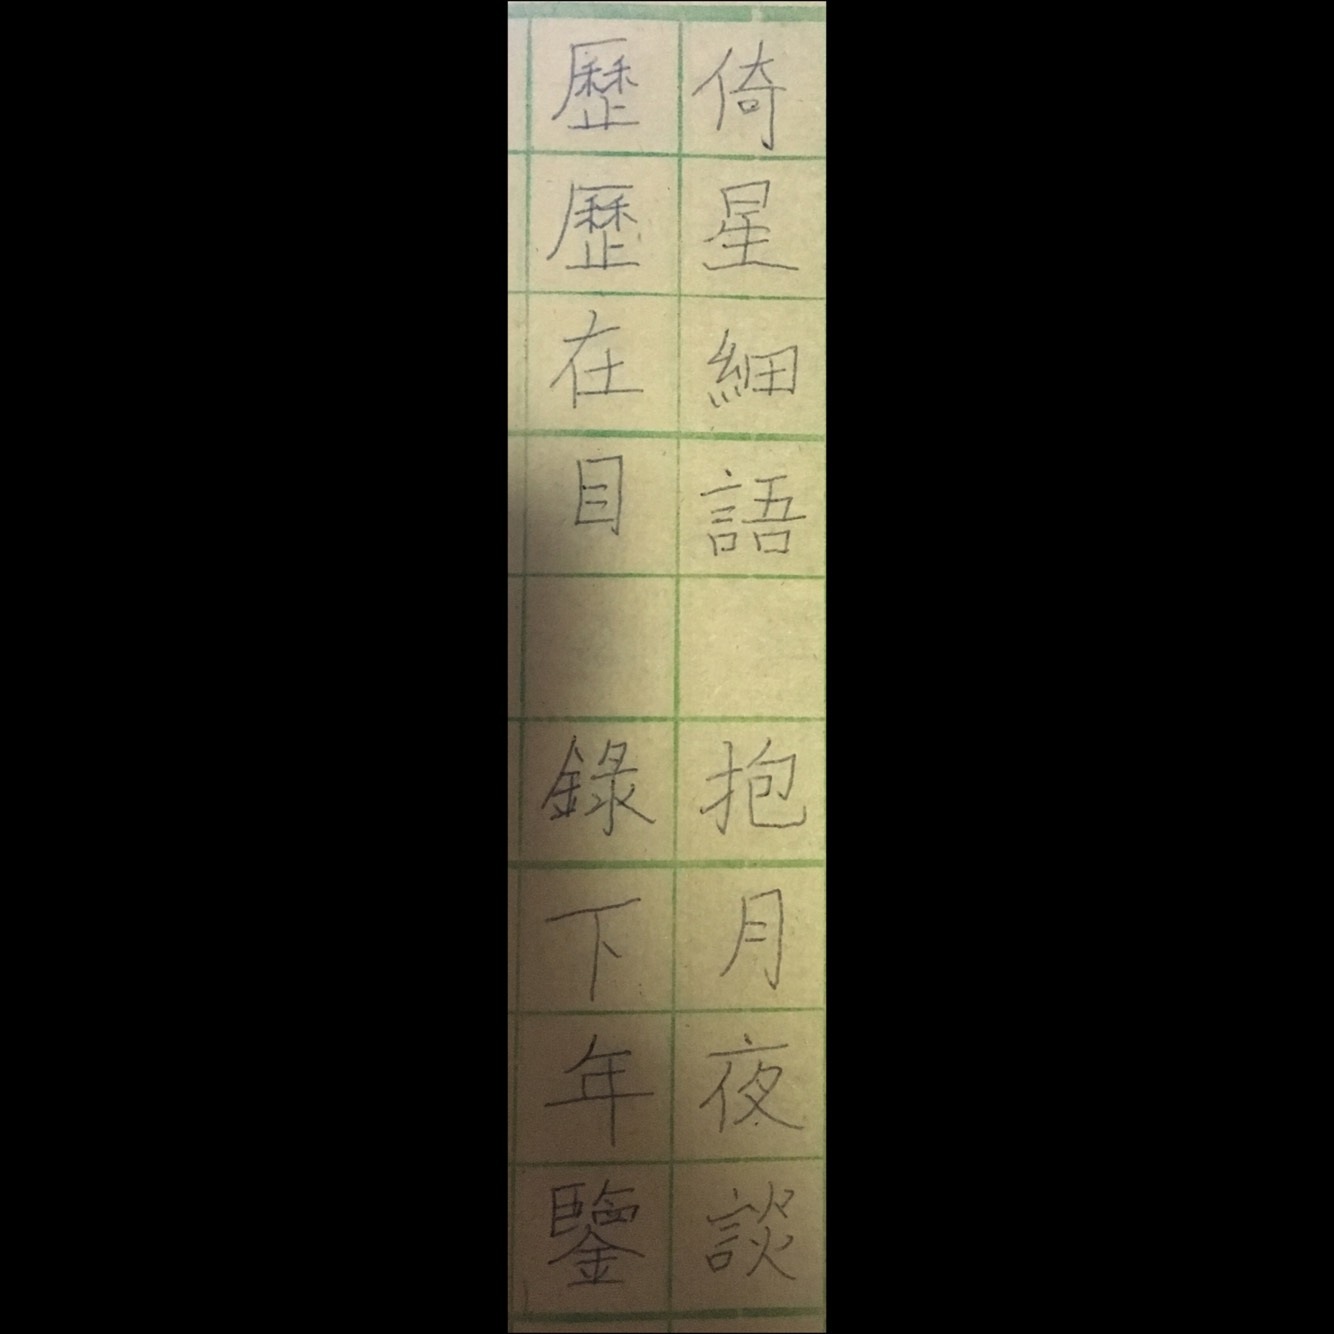 倚星細語 抱月夜談
歷歷在目 錄下年鑒